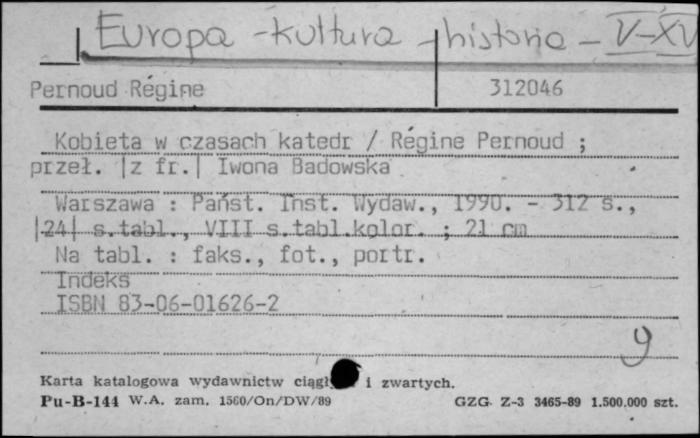 Europa - kultura - historia - V-XV
Pernoud Régine 312046
Kobieta w czasach katedr / Régine Pernoud ;
przeł. |z fr.| Iwona Badowska
Warszawa : Państ. Inst. Wydaw., 1990. - 312 s.,
|24| s.tabl., VIII s.tabl.kolor. ; 21 cm
Na tabl. : faks., fot., portr.
Indeks
ISBN 83-06-01626-2
9
Karta katalogowa wydawnictw i zwartych.
Pu-B-144 W.A. zam. 1560/On/DW/89 GZG. Z-3 3465-89 1.500.000 szt.